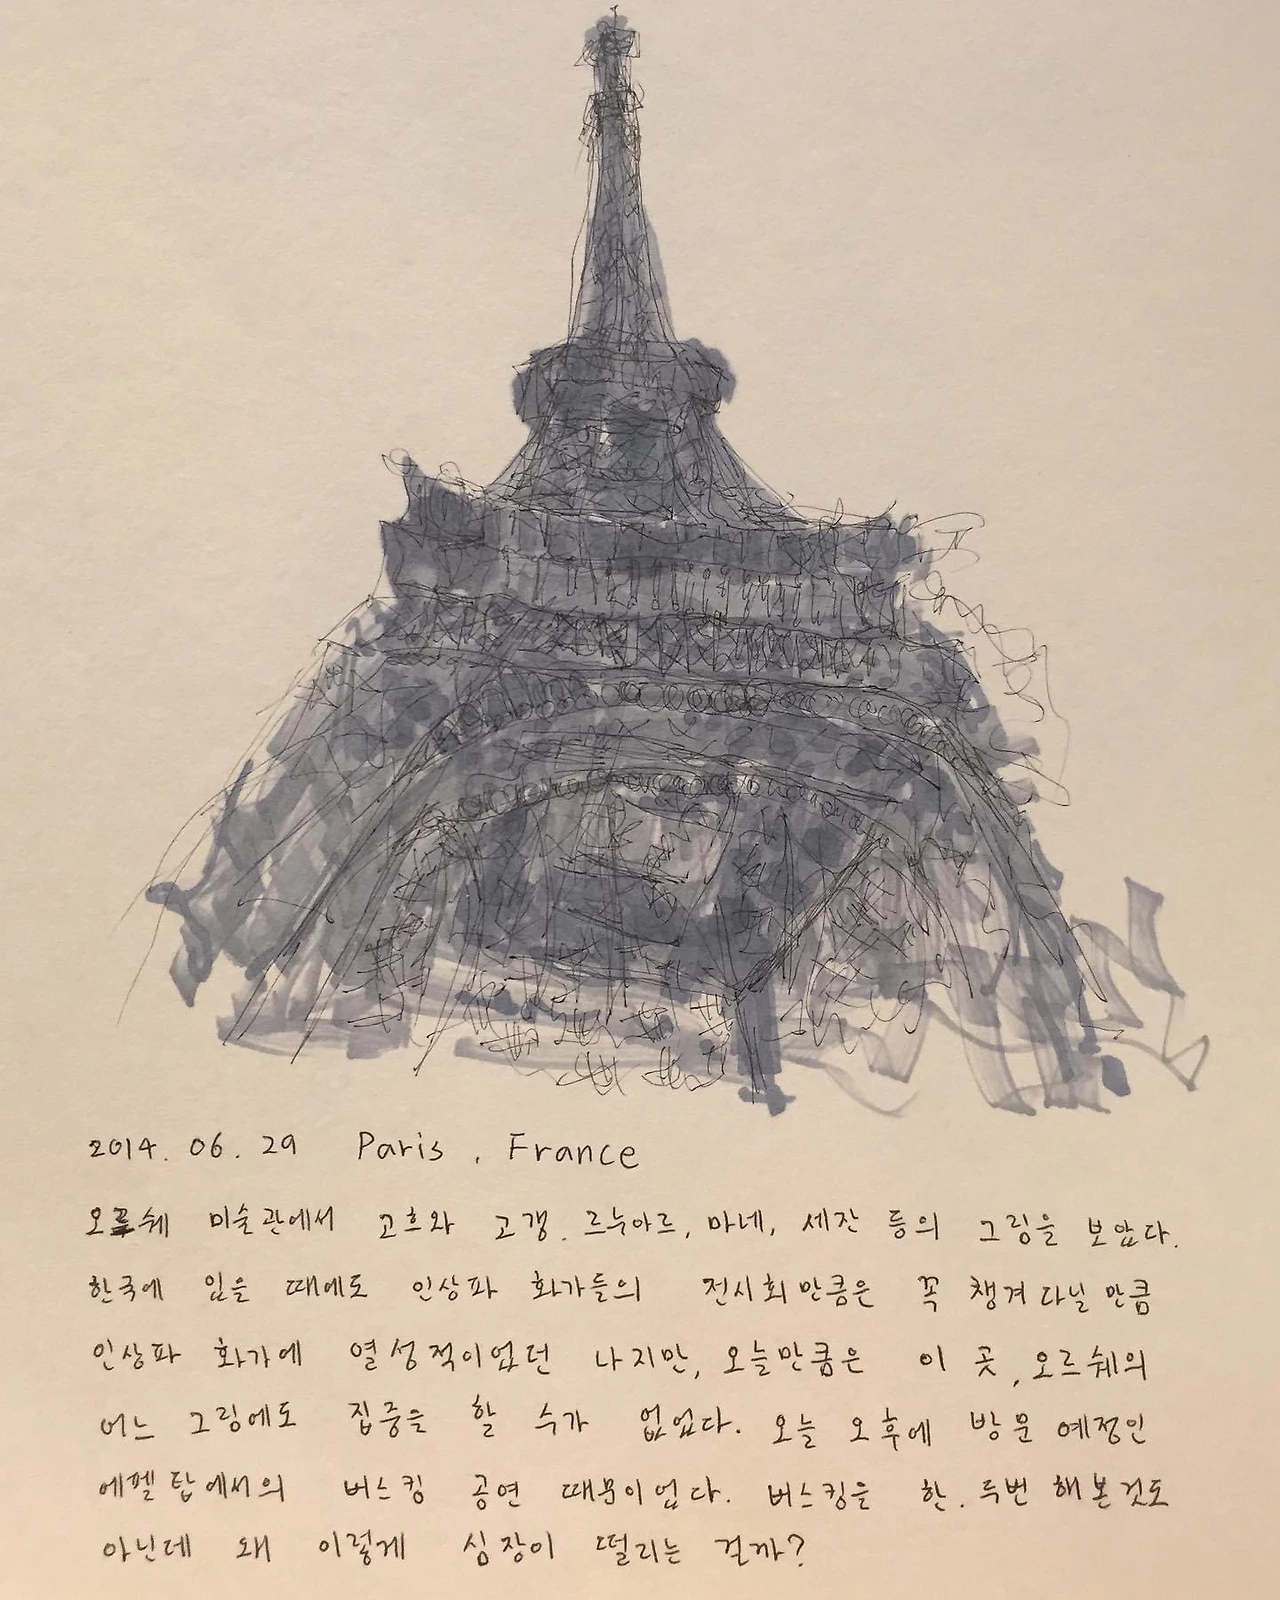 2014. 06. 29 Paris, France
오르쉐 미술관에서 고흐와 고갱, 르누아르, 마네, 세잔 등의 그림을 보았다.
한국에 있을 때에도 인상파 화가들의 전시회만큼은 꼭 챙겨다닐 만큼
인상파 화가에 열성적이었던 나지만, 오늘만큼은 이 곳, 오르쉐의
어느 그림에도 집중을 할 수가 없었다. 오늘 오후에 방문 예정인
에펠탑에서의 버스킹 공연 때문이었다. 버스킹을 한, 두번 해본것도
아닌데 왜 이렇게 심장이 떨리는 걸까?